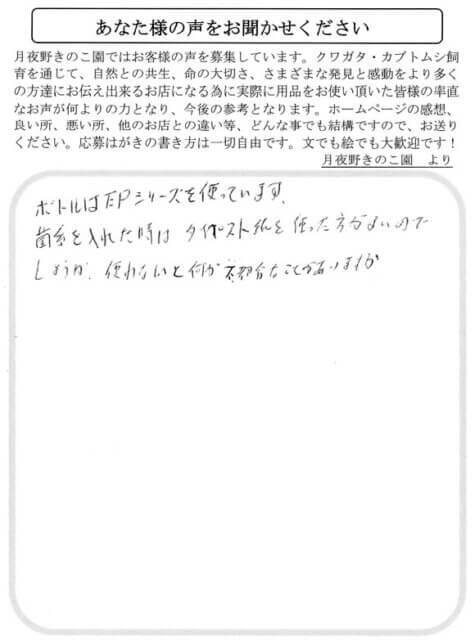 あなた様の声をお聞かせください
月夜野きのこ園ではお客様の声を募集しています。クワガタ・カブトムシ飼
育を通じて、自然との共生、命の大切さ、さまざまな発見と感動をより多く
の方達にお伝え出来るお店になる為に実際に用品をお使い頂いた皆様の率直
なお声が何よりの力となり、今後の参考となります。ホームページの感想、
良い所、悪い所、他のお店との違い等、どんな事でも結構ですので、お送り
ください。応募はがきの書き方は一切自由です。文でも絵でも大歓迎です！
月夜野きのこ園　より
ボトルはEPシリーズを使っています、
菌糸を入れた時は タイベスト紙を 使った方がよいので
しょうか、使わないと何か 不都合なことがありますか